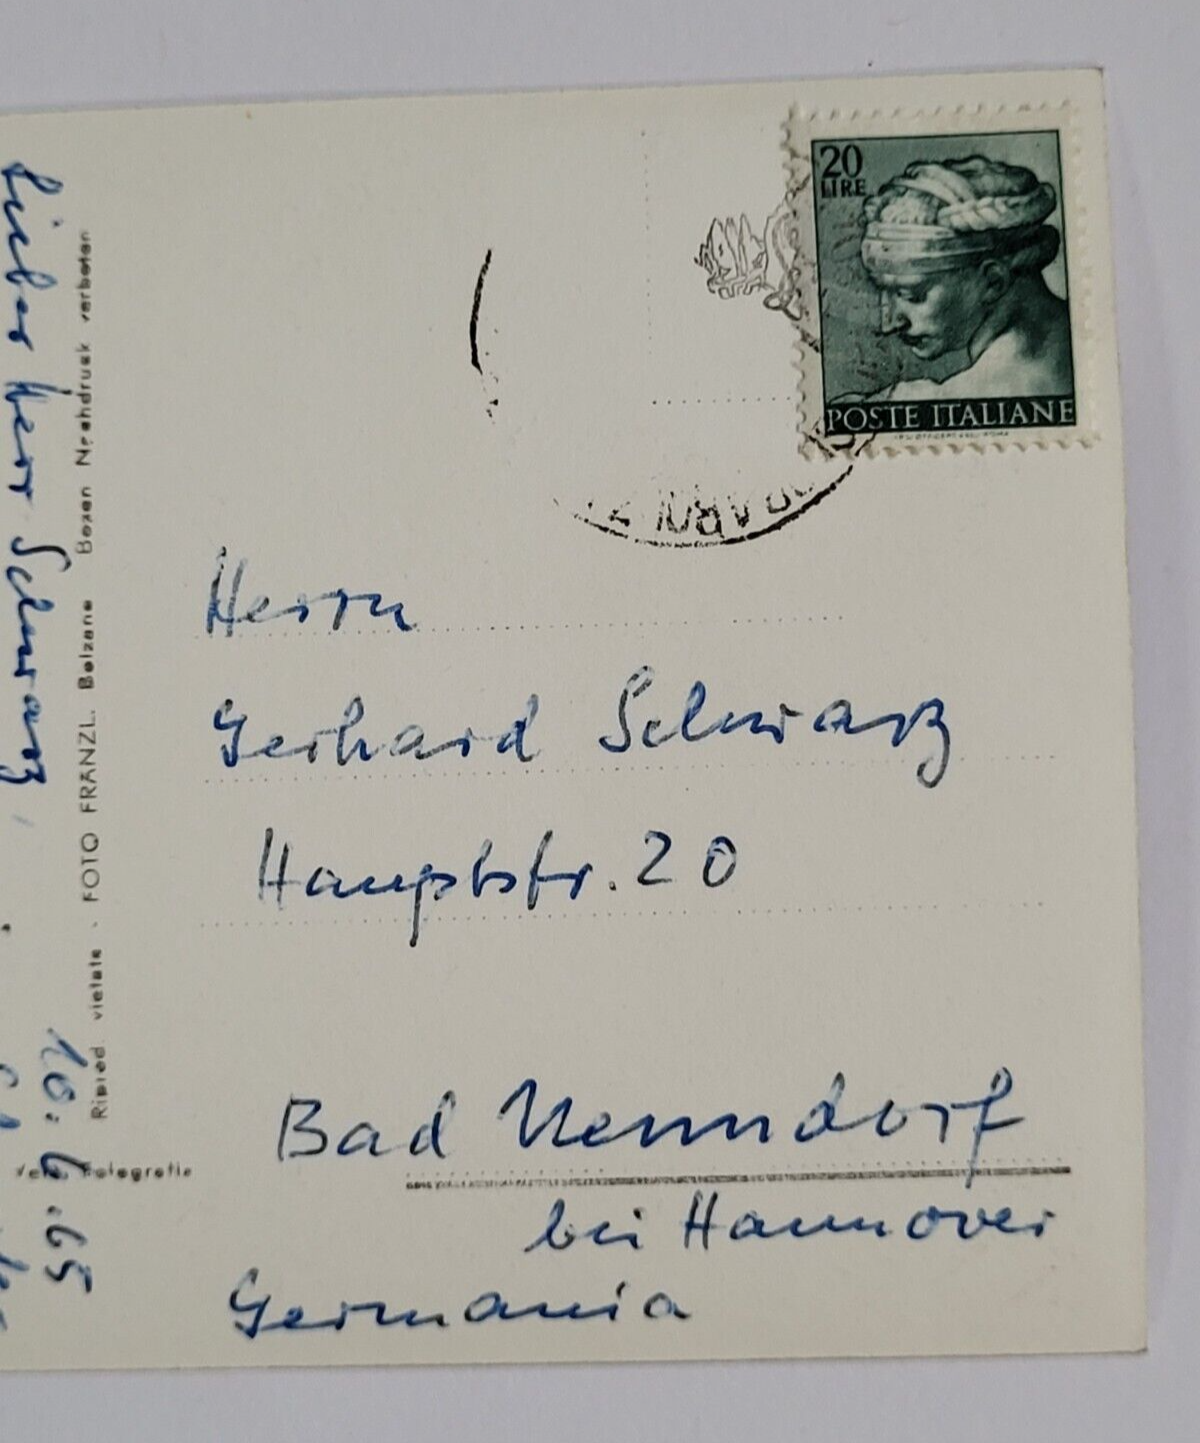 20
LIRE
POSTE ITALIANE
Herrn
Gerhard Schwarz
Hauptstr. 20
Bad Nenndorf
bei Hannover
Germania
Ripred. vietate - FOTO FRÄNZL. Bolzano Bozen Nachdruck verboten
Vera Fotografia
Lieber Herr Schwarz,
10.6.65